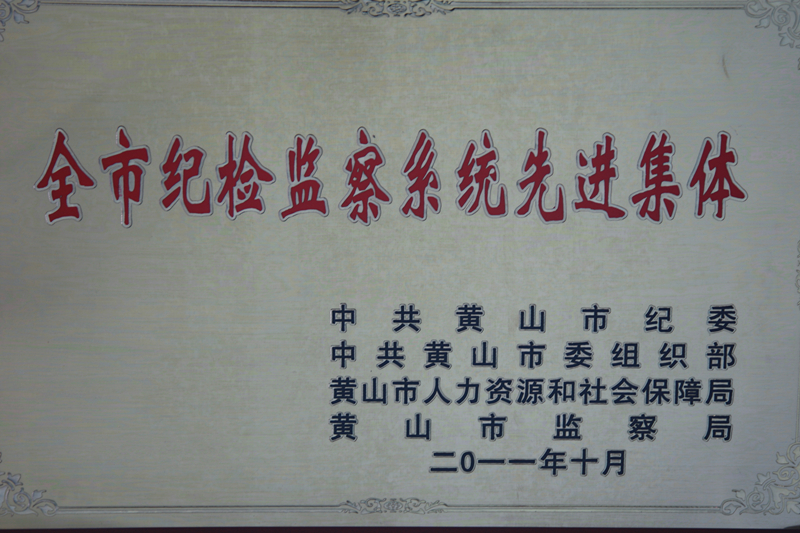 全市纪检监察系统先进集体
中共黄山市纪委
中共黄山市委组织部
黄山市人力资源和社会保障局
黄山市监察局
二0一一年十月